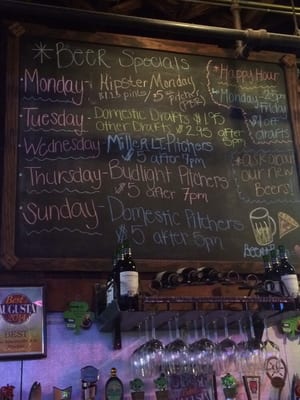 *Beer Specials
Monday - Hipster Monday
pints/$5 Pitcher
(PBR)
Tuesday - Domestic Drafts $1.95
Other Drafts $2.95 after 5pm
Wednesday - Miller LT. Pitchers
$5 after 7pm
Thursday - Budlight Pitchers
$5 after 7pm
Sunday - Domestic Pitchers
$5 after 5pm
Happy Hour
Monday-
Friday
$1 off
drafts
*ask about
our new
Beers!
Best
AUGUSTA
BEST